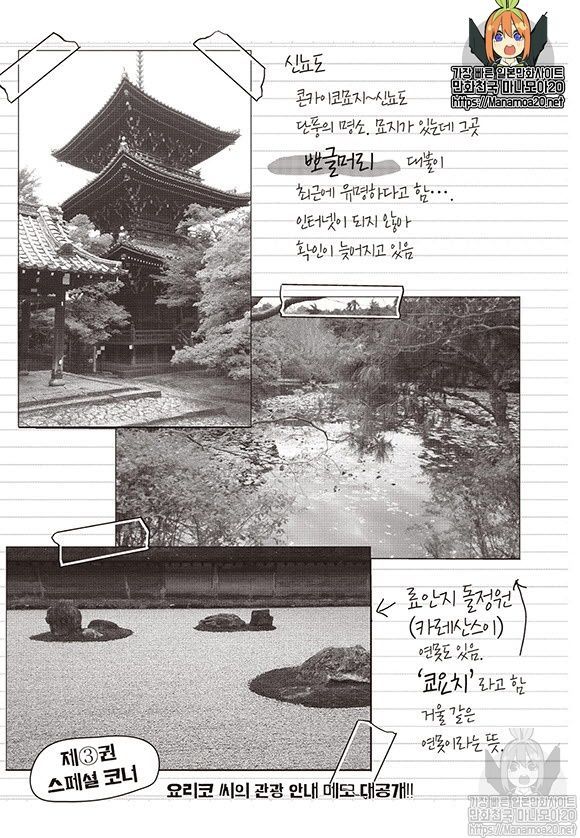 가장 빠른 일본만화사이트
만화천국 마나모아20
https://Manamoa20.net
신뇨도
콘카이코묘지~신뇨도
단풍의 명소. 묘지가 있는데 그곳
뽀글머리 대불이
최근에 유명하다고 함….
인터넷이 되지 않아
확인이 늦어지고 있음
료안지 돌정원
(카레산스이)
연못도 있음.
'쿄요치' 라고 함
거울 같은
연못이라는 뜻.
제③권
스페셜 코너
요리코 씨의 관광 안내 메모 대공개!!
가장 빠른 일본만화사이트
만화천국 마나모아20
https://Manamoa20.net